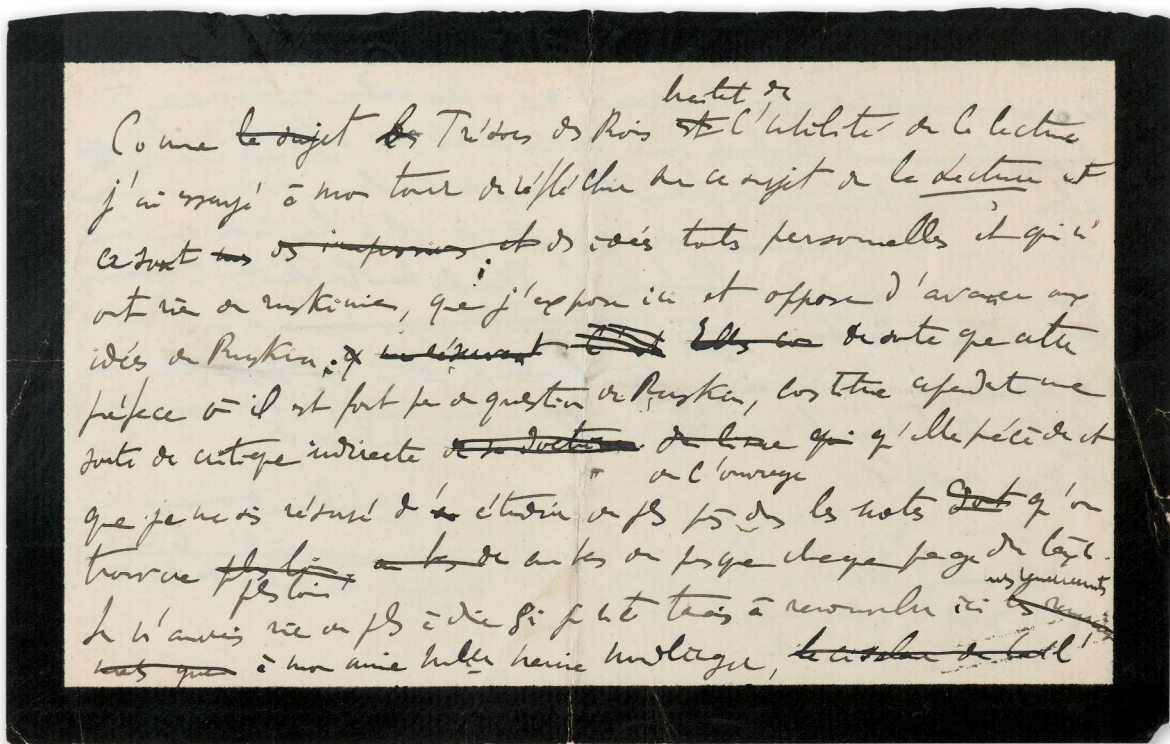 traitent de
Comme le sujet des Trésors des Rois est l'utilité de la lecture
j'ai essayé à mon tour de réfléchir sur ce sujet de la Lecture et
ce sont mes des impressions et des idées toutes personnelles et qui n'
ont rien de ruskinien, que j'expose ici et oppose d'avance aux
idées de Ruskin ; de sorte que cette
préface où il est fort peu question de Ruskin, constitue cependant une
sorte de critique indirecte de sa doctrine du livre qui qu'elle précède et
de l'ouvrage
que je me suis réservé d'étudier de plus près dans les notes dont qu'on
trouvera plus loin, au bas de au bas de presque chaque page du texte.
plus loin mes remerciements
Je n'aurais rien de plus à dire si je ne tenais à renouveler ici
mais que à mon amie Mlle Marie Nordlinger,